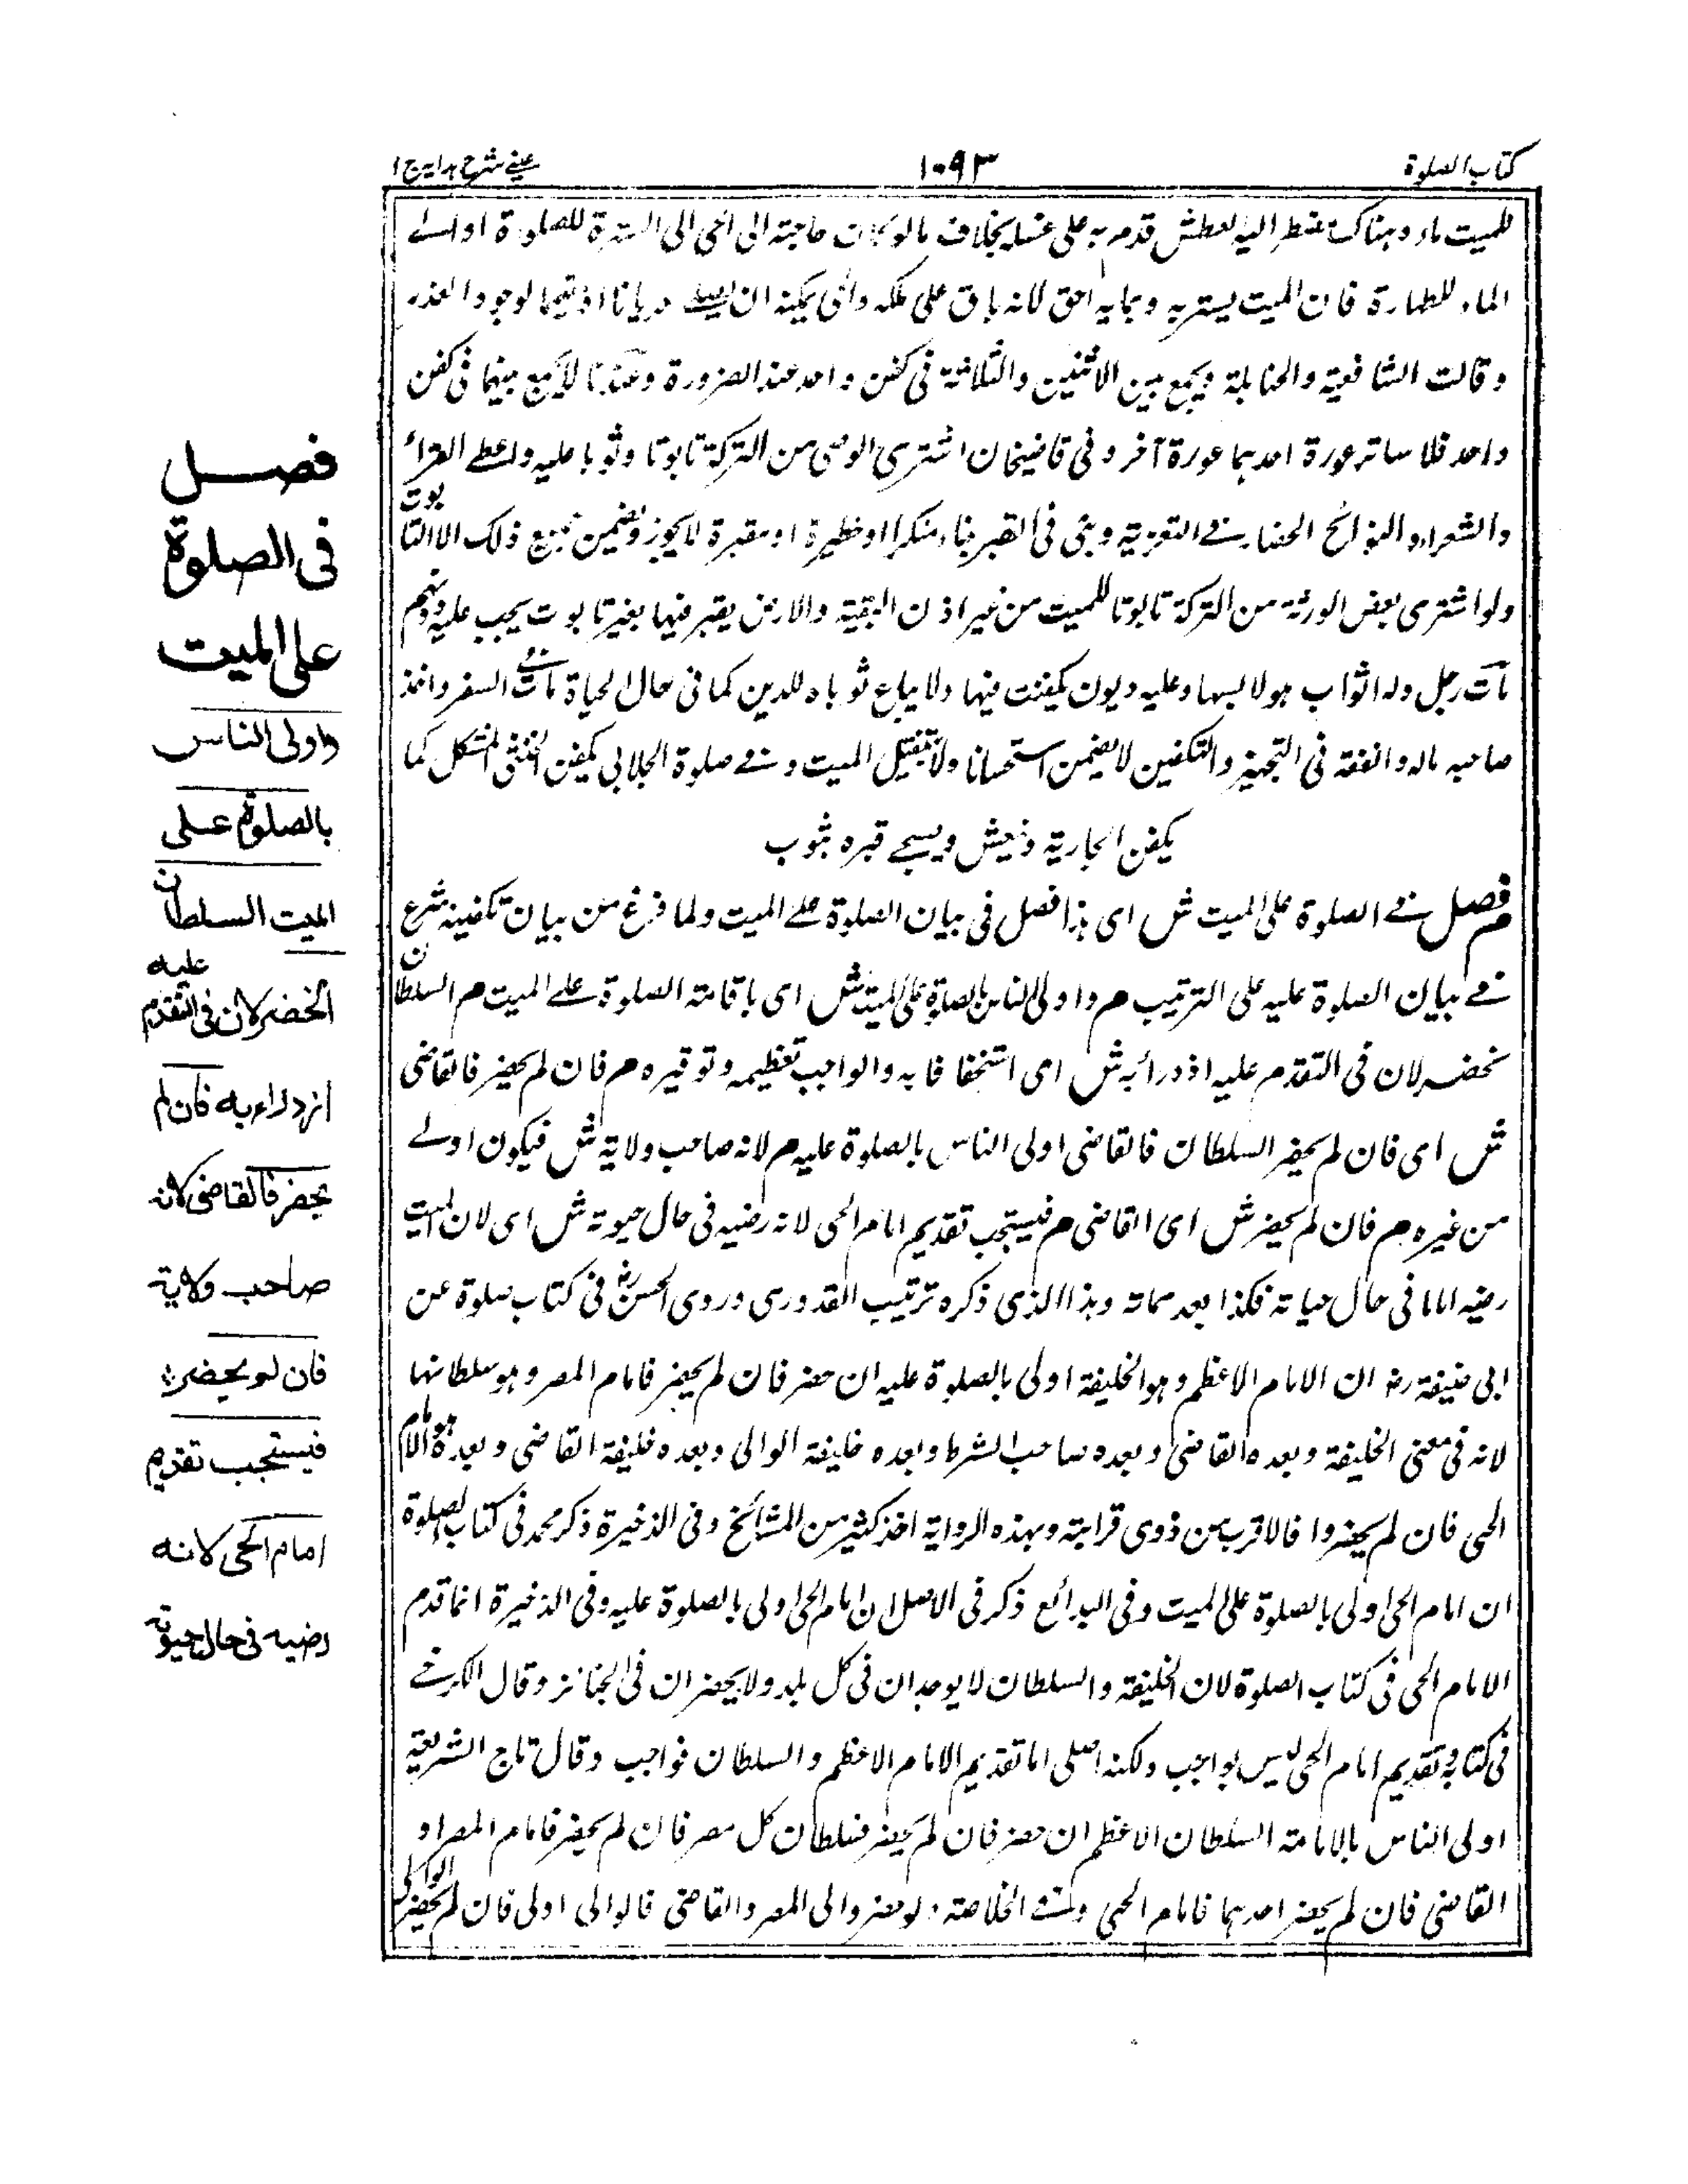 كتاب الصلوة
١٠٩٣
عيني شرح هدايه ج ١
للميت ماء وهناك مضطر اليه لعطش قدم به على غسله بخلاف مالو كان حاجته الى الحي الى السترة للصلوة او الى
الماء للطهارة فان الميت يستر به وبمايه احق لانه باق على ملكه والحي يمكنه ان يصلي عريانا اذ تيمما لوجود العذر
وقالت الشافعية والحنابلة ويجمع بين الاثنين والثلاثة في كفن واحد عند الضرورة وعندنا لا يجمع بينهما في كفن
واحد فلا ساتر عورة احدهما عورة آخر وفي قاضيخان اشترى الوصي من التركة تابوتا وثوبا عليه واعطى القراء
والشعراء والنوائح الحضار في التعزية وبنى في القبر بناء منكرا او حظيرة او مقبرة لا يجوز ويضمن جميع ذلك الا التابوت
ولو اشترى بعض الورثة من التركة تابوتا للميت من غير اذن البقية والارض يقبر فيها بغير تابوت يجب عليه دونهم
مات رجل وله اثواب هو لابسها وعليه ديون يكفنت فيها ولا يباع ثوباه للدين كما في حال الحياة مات في السفر واخذ
صاحبه ماله وانفقه في التجهيز والتكفين لا يضمن استحسانا ولا الميت وفي صلوة الجلابي يكفن الخنثى المشكل كما
يكفن الجارية وينعش ويسجى قبره بثوب
م فصل في الصلوة على الميت ش اي هذا فصل في بيان الصلوة على الميت ولما فرغ من بيان تكفينه شرع
في بيان الصلوة عليه على الترتيب م واولى الناس بالصلوة على الميت ش اي باقامته الصلوة على الميت م السلطان
ان حضر لان في التقدم عليه ازدراء به ش اي استخفافا به والواجب تعظيمه وتوقيره م فان لم يحضر فالقاضي
ش اي فان لم يحضر السلطان فالقاضي اولى الناس بالصلوة عليه م لانه صاحب ولاية ش فيكون اولى
من غيره م فان لم يحضر ش اي القاضي م فيستحب تقديم امام الحي لانه رضيه في حال حيوته ش اي لان الميت
رضيه اماما في حال حياته فكذا بعد مماته وهذا الذي ذكره ترتيب القدوري وروى الحسن رح في كتاب صلوة عن
ابي حنيفة رض ان الامام الاعظم وهو الخليفة اولى بالصلوة عليه ان حضر فان لم يحضر فامام المصر وهو سلطانها
لانه في معنى الخليفة وبعده القاضي وبعده صاحب الشرط وبعده خليفة الوالي وبعده خليفة القاضي وبعد هؤلاء امام
الحي فان لم يحضروا فالاقرب من ذوي قرابته وبهذه الرواية اخذ كثير من المشائخ وفي الذخيرة ذكر محمد في كتاب الصلوة
ان امام الحي اولى بالصلوة على الميت وفي البدائع ذكر في الاصل ان امام الحي اولى بالصلوة عليه وفي الذخيرة انما قدم
الامام الحي في كتاب الصلوة لان الخليفة والسلطان لا يوجدان في كل بلد ولا يحضران في الجنائز وقال الكرخي
في كتابه وتقديم امام الحي ليس بواجب ولكنه اصلي اما تقديم الامام الاعظم والسلطان فواجب وقال تاج الشريعة
اولى الناس بالامامة السلطان الاعظم ان حضر فان لم يحضر فسلطان كل مصر فان لم يحضر فامام المصر او
القاضي فان لم يحضر احدهما فامام الحي وفي الخلاصة ولو حضر والي المصر والقاضي فالوالي اولى فان لم يحضر الوالي
فصل
في الصلوة
على الميت
واولى الناس
بالصلوة على
الميت السلطان
ان حضر لان في التقدم عليه
ازدراء به فان لم
يحضر فالقاضي لانه
صاحب ولاية
فان لم يحضر
فيستحب تقديم
امام الحي لانه
رضيه في حال حيوته